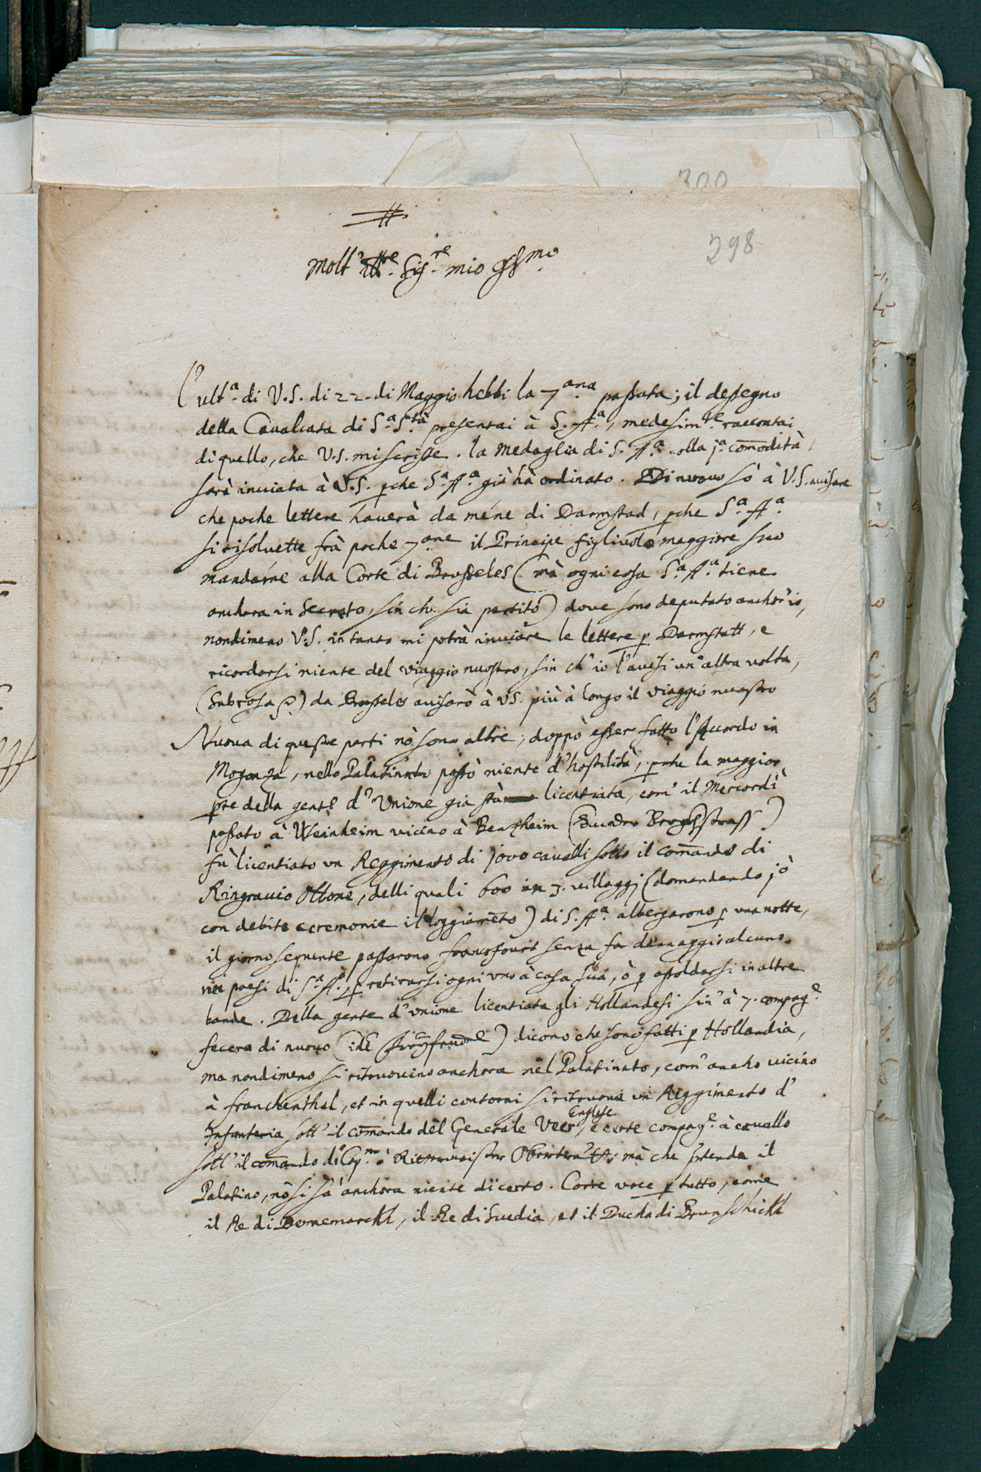 300
298
Molt' Ill.re Sig.re mio oss.mo
L'ult.a di V.S. di 22. di Maggio hebbi la 7.ana passata; il dessegno
della Cavalcata di S.a S.tà presentai à S. A.a, medesim.te raccontai
di quello, che V.S. mi scrisse. la Medaglia di S. A.a colla j.a comodità
sarà inviata à V.S. pche S.a A.a già hà ordinato. Di nuovo fò à V.S. avisare
che poche lettere haverà da mène di Darmstad, pche S.a A.a
si risoluette frà poche 7.ane il Principe figliuolo maggiore suo
mandarne alla Corte di Brusseles (mà ogni cosa S.a A.a tiene
anchora in secreto, sin che sia partito) dove sono deputato anchor'io,
nondimeno V.S. in tanto mi potrà inviare le lettere p Darmstatt, e
ricordarsi niente del viaggio nuostro, sin ch'io l'avisi un'altra volta,
(Sub rosa) da Brusseles avisarò à V.S. più à longo il viaggio nuostro
Nuova di queste parti nò sono altre, doppò esser fatto l'Accordo in
Moganza, nello Palatinato passò niente d'hostilità, pche la maggior
pte della gente d'Unione già stà licentiata, com' il Mercordì
passato à Weinheim vicino à Bensheim (Bergstrass)
fù licentiato un Reggimento di jovo cavalli sotto il comando di
Ringravio Ottone, delli quali 600 in 3. villaggi (domandando jò
con debite ceremonie il loggiameto) di S. A.a albergarono p una notte,
il giorno sequente passarono francofourt senza far dannaggio alcuno
nei paesi di S.a A.a, p retirarsi ogni uno à casa sua, ò p assoldarsi in altre
bande. Della gente d'Unione licentiata gli Hollandesi sin' à 7. compag.e
fecero di nuovo dicono che sono fatti p Hollandia,
ma nondimeno si ritruovino anchora nel Palatinato, com' ancho vicino
à franckenthal, et in quelli contorni si ritruova un Reggimento d'
Infanteria sott' il comando del Generale Veer, Englese, e certe compag.e à cavallo
sott' il comando di Cap.no ò Rittmaister Obentraut; mà che pretenda il
Palatino, nò si sà anchora niente di certo. Corre voce p tutto, come
il Re di Dennemarckt, il Re di Suedia, et il Ducha di Brunschickt